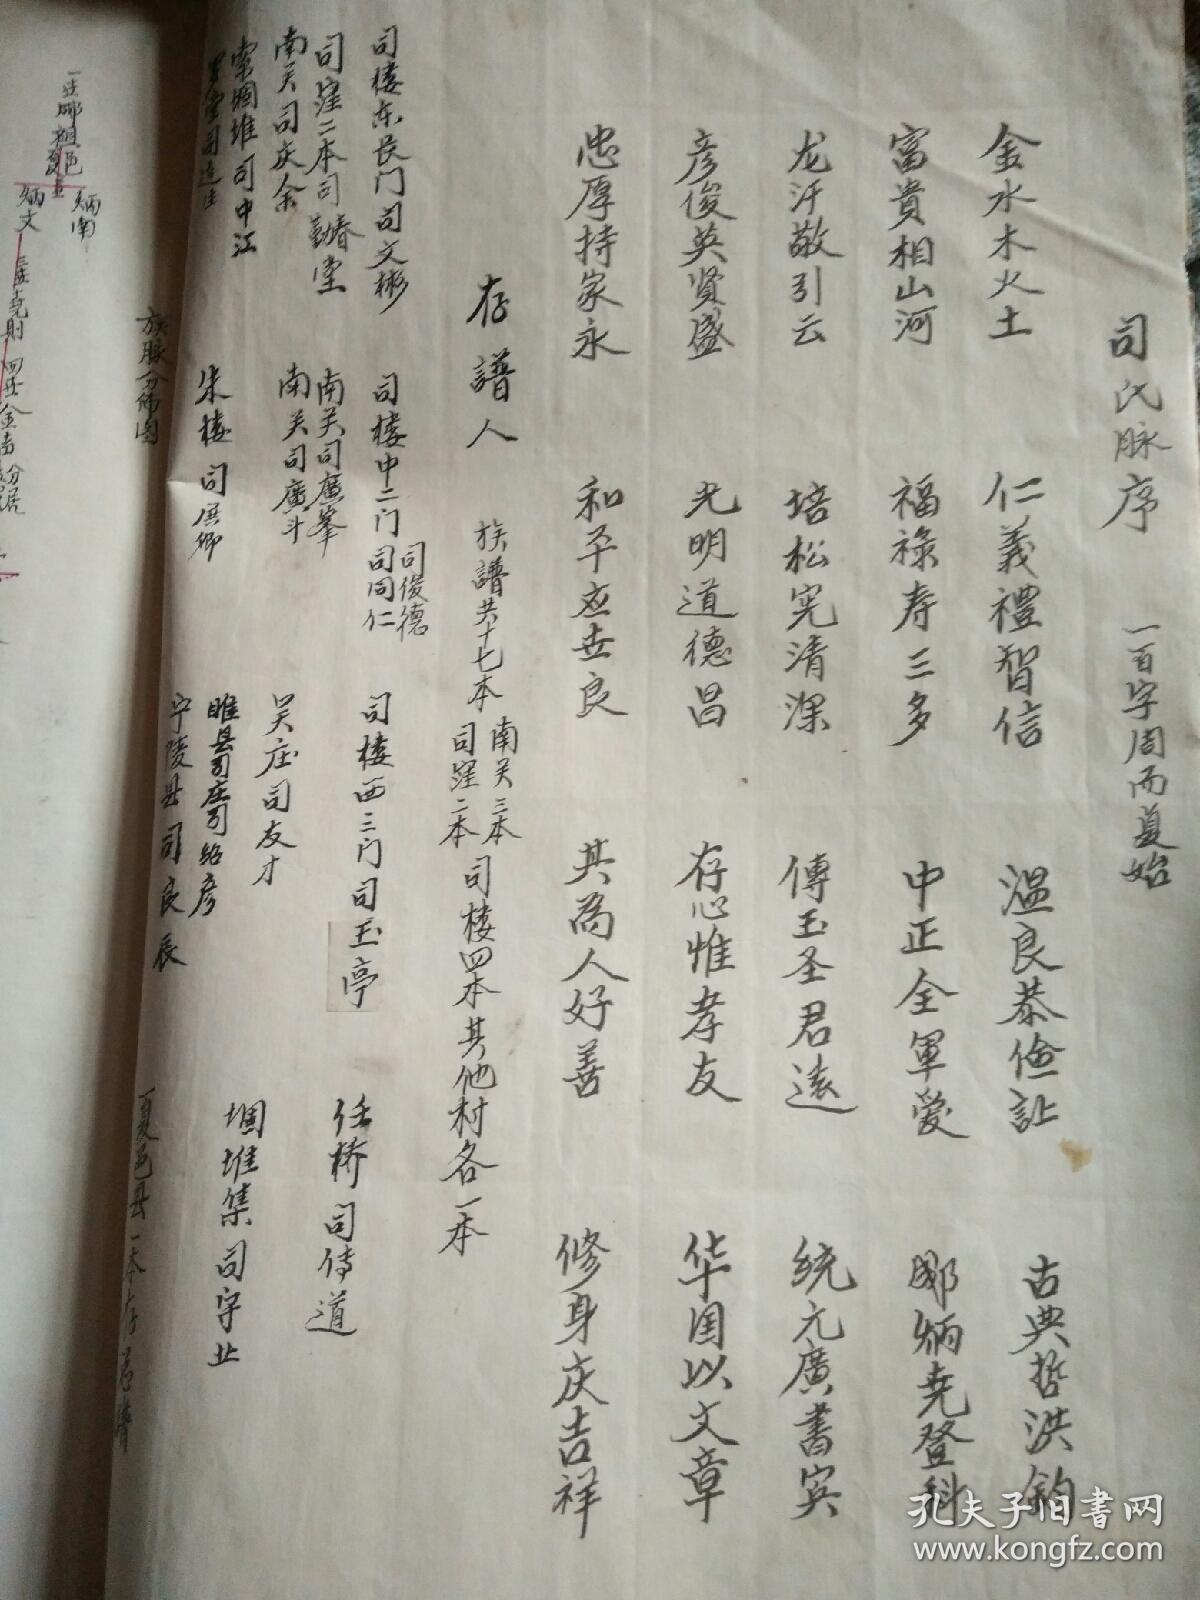 司氏脉序 一百字周而复始
金水木火土 仁義禮智信 溫良恭儉讓 古典哲洪鈞
富貴相山河 福祿寿三多 中正全軍愛 郷炳尧登科
龙汗敬引云 培松宪清深 傳玉圣君遠 统元廣書宾
彦俊英贤盛 光明道德昌 存心惟孝友 华国以文章
忠厚持家永 和平应世良 共為人好善 修身庆吉祥
存譜人 族譜共十七本 南关三本 司窪二本 司楼四本其他村各一本
司楼东长门司文彬 司楼中二门 司俊德 司同仁 司楼西三门司玉亭 任桥司传道
司窪二本司春堂 南关司廣峯
南关司庆余 南关司廣斗 吴庄司友才 堌堆集司守业
堌堆司中江 朱楼司展卿 睢县司庄司绍彦
宁陵县司良辰
夏邑县一本存
族脉分佈图
炳南
炳文 三世尧则 四世金